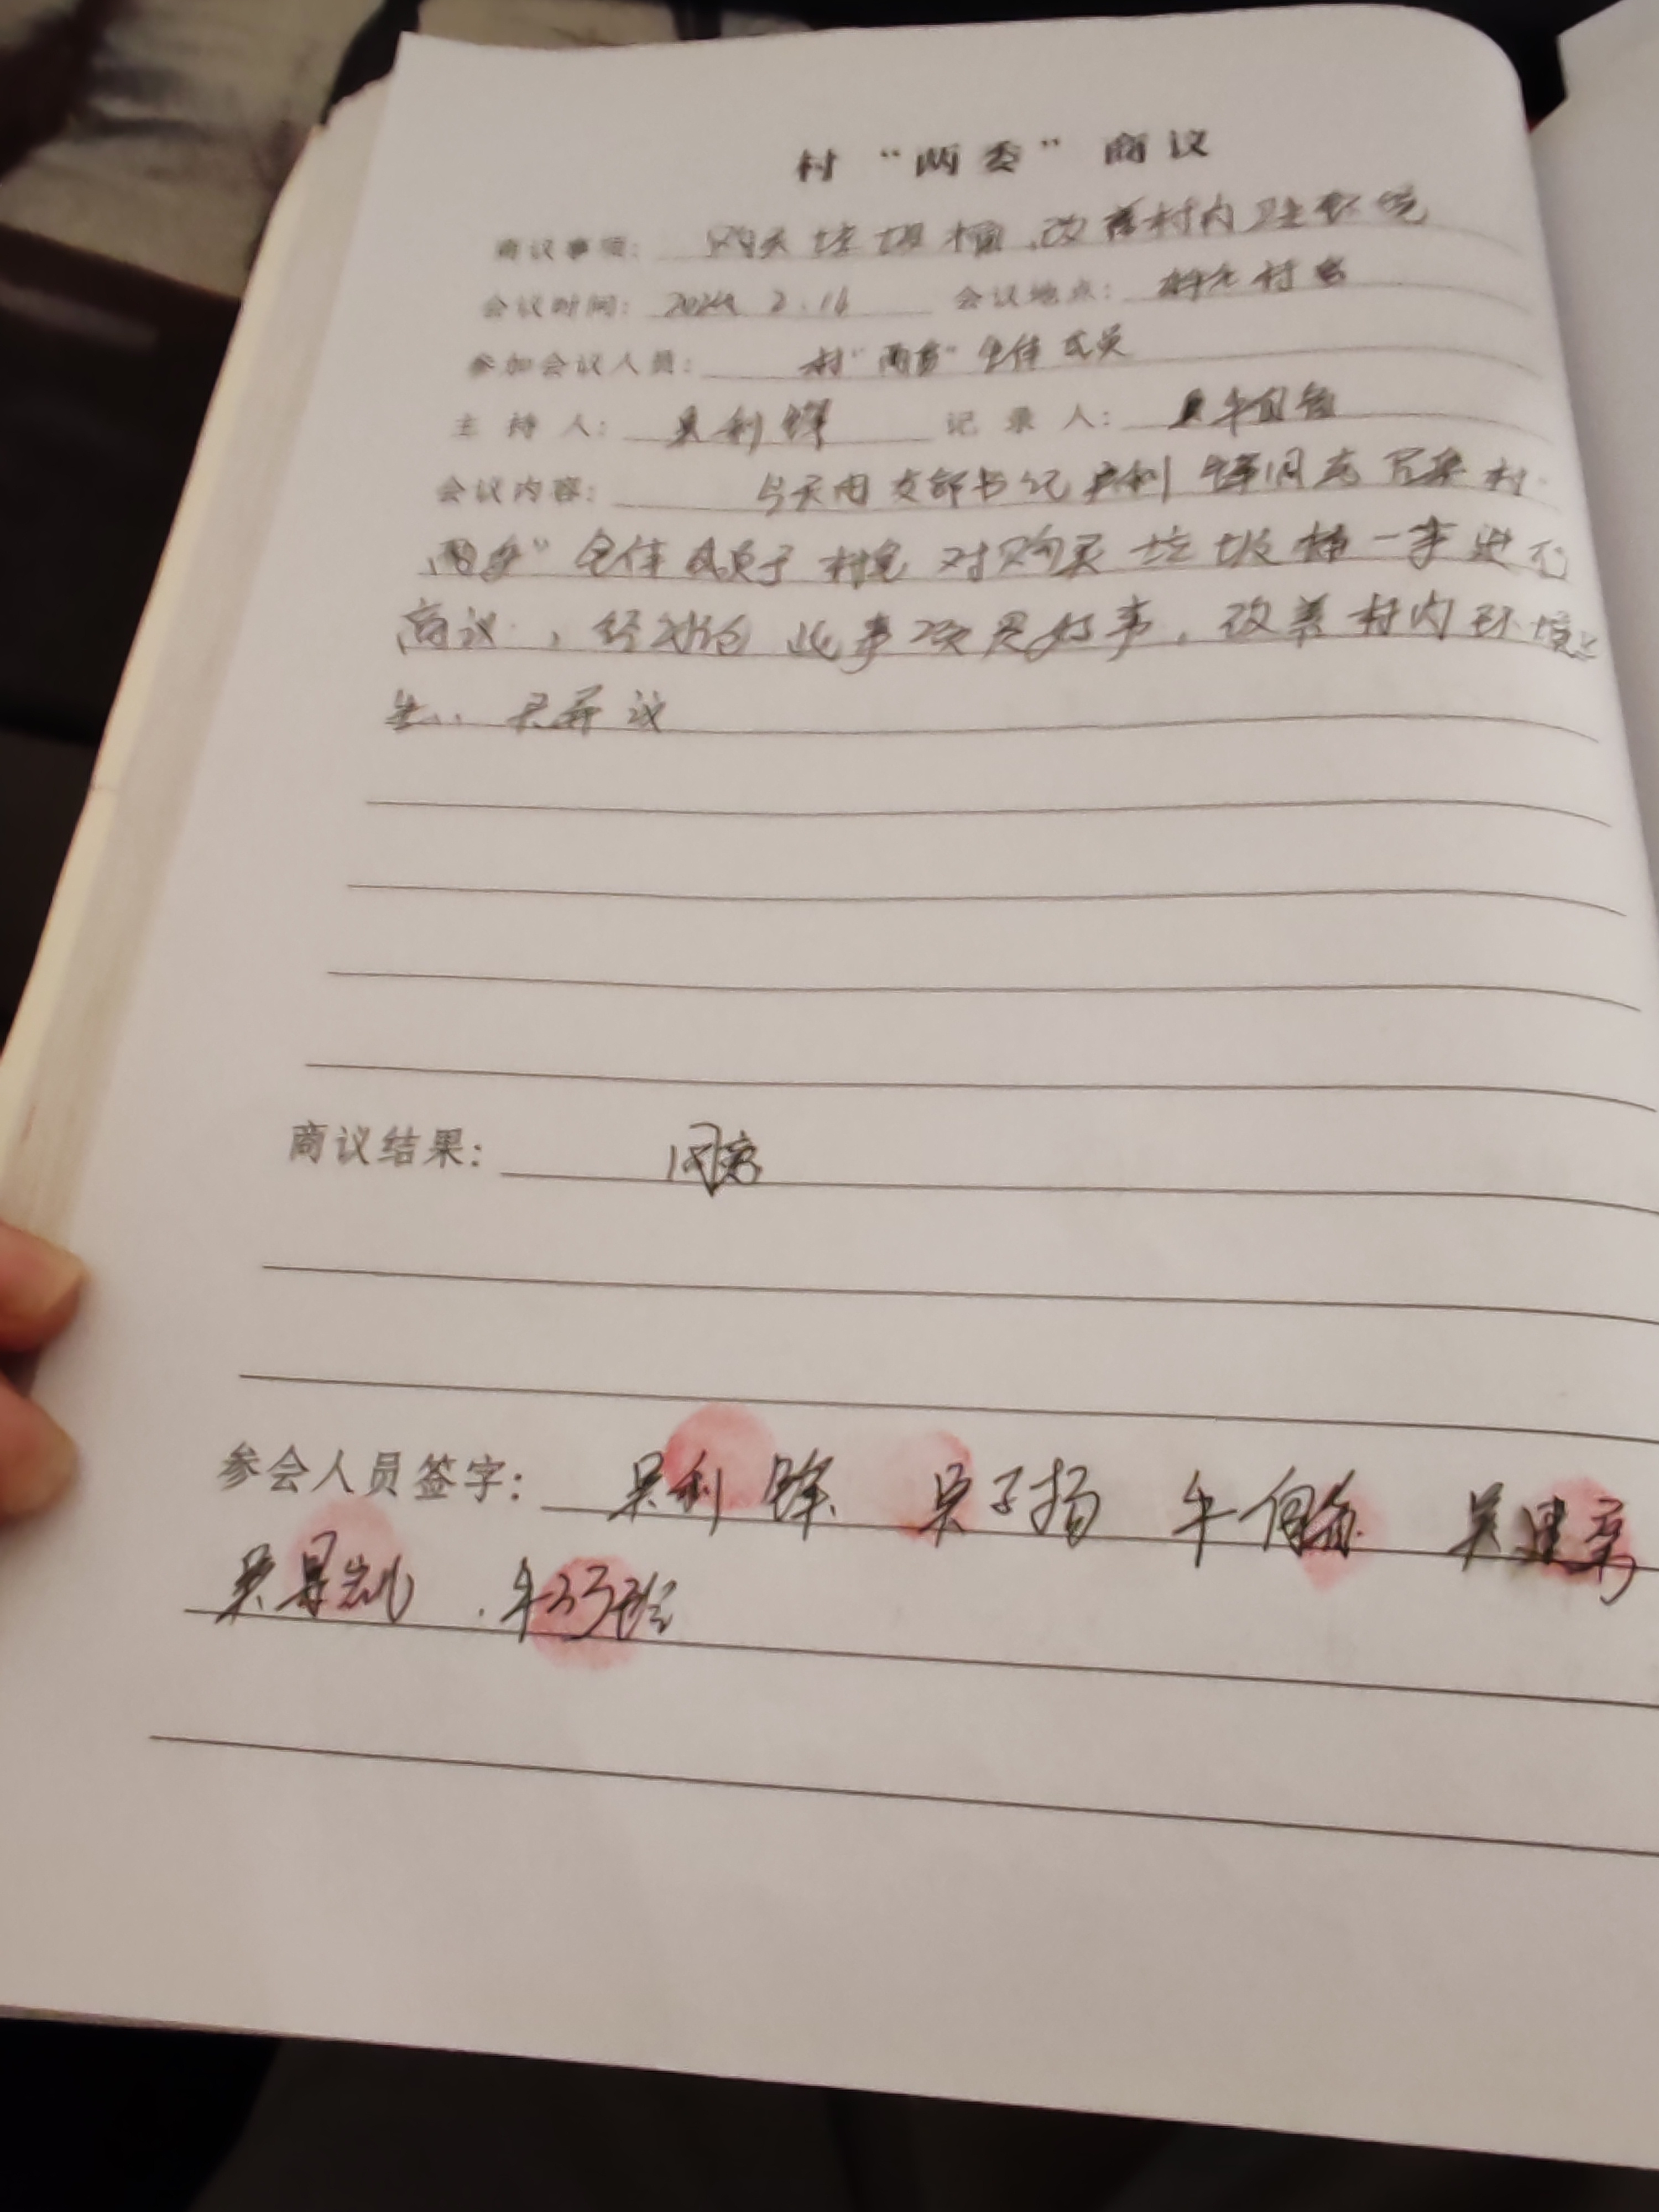 村“两委”商议
商议事项: 购买垃圾桶、改善村内卫生环境
会议时间: 2024 2.16 会议地点: 村室
参加会议人员: 村“两委”全体成员
主持人: 吴利锋 记录人:
会议内容: 今天由支部书记吴利锋同志召集村
两委”全体成员于村室对购买垃圾桶一事进行
商议,经讨论此事项是好事,改善村内环境卫
生,无异议
商议结果: 同意
参会人员签字: 吴利锋 吴子扬 牛 吴建
吴景 牛